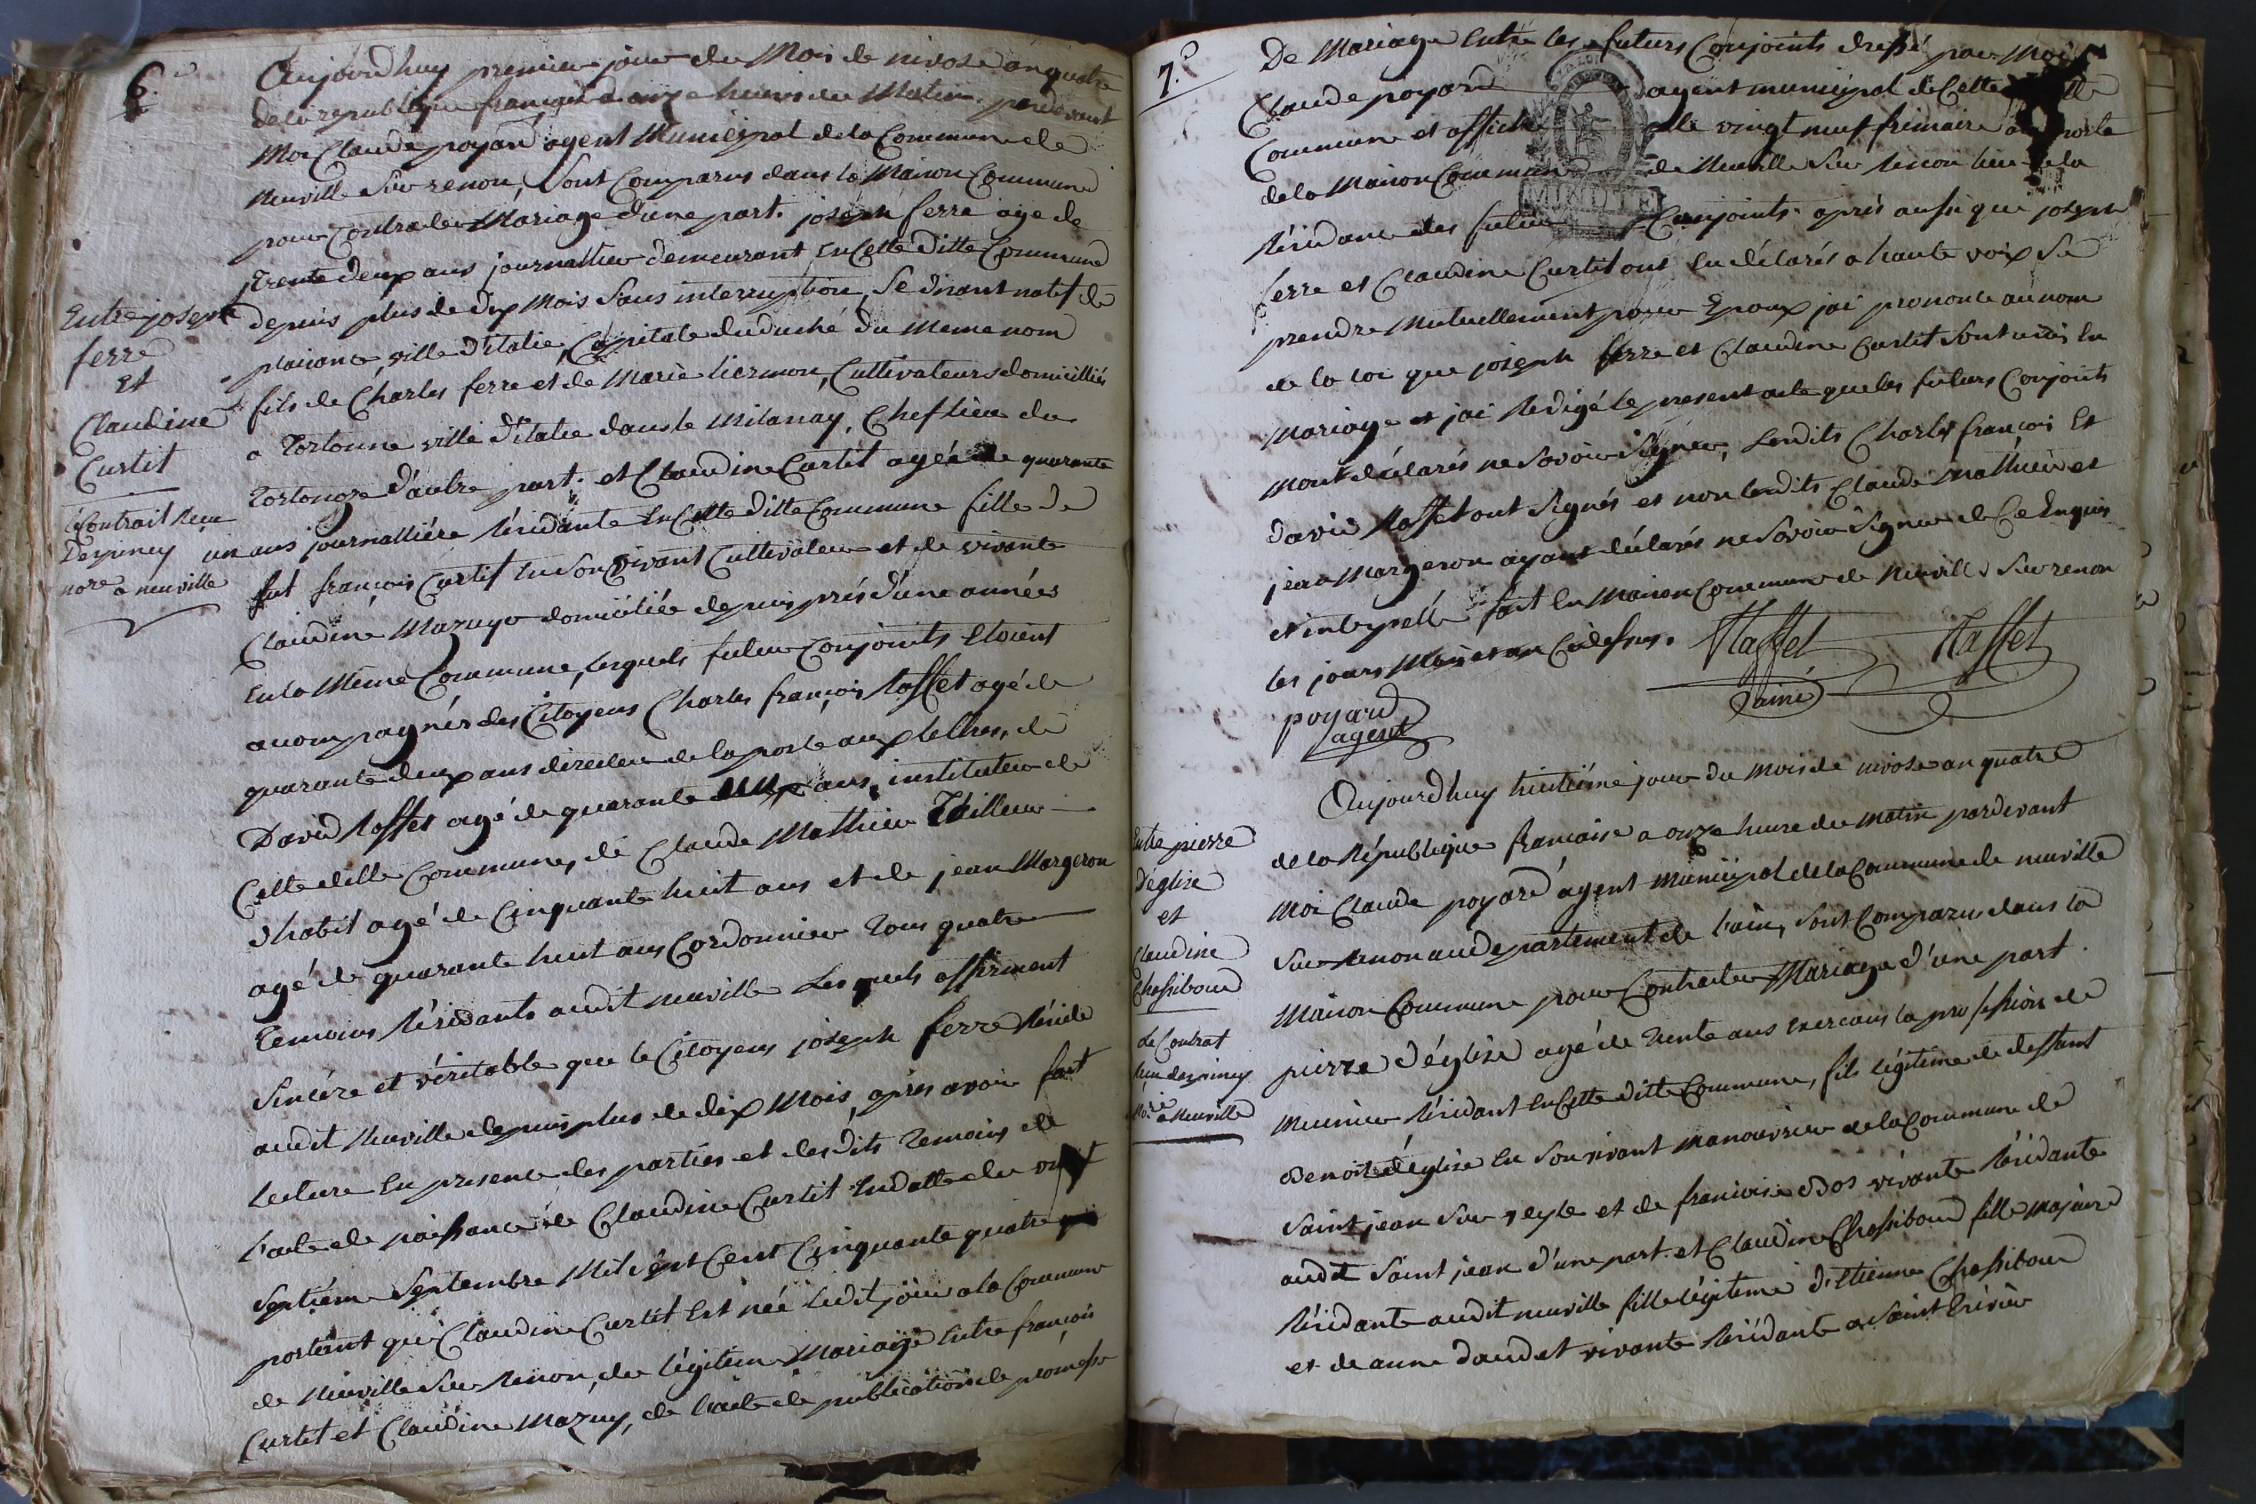 6.e
Aujourdhuy premier jour du Mois de nivose an quatre
de la republique française a onze heures du Matin pardevant
Moi Claude poyard agent Municipal de la Commune de
Neuville Sur renon, Sont Comparus dans la Maison Commune
pour Contracter Mariage d'une part. joseph ferre age de
trente deux ans journallier demeurant En Cette ditte Commune
depuis plus de dix Mois Sans interruption, Se disant natif de
plaisance, ville d'italie, Capitale du duché du Meme nom
fils de Charles ferre et de Marie liermon, Cultivateurs domiciliés
a Tortonne ville d'italie dans le Milanay, Chef lieu du
Tortonoze d'autre part. et Claudine Curtit agée de quarante
un ans journalliére Résidante En Cette ditte Commune fille de
fut françois Curtit En Son vivant Cultivateur et de vivante
Claudine Mazuye domiciliée depuis prés d'une années
En la Même Commune, lesquels futeur Conjoints Etoient
acompagnés des Citoyens Charles françois Raffet agé de
quarante deux ans directeur de la poste aux lettres, de
David Raffet agé de quarante ans, instituteur de
Cette ditte Commune, de Claude Mathieu Tailleur
d'habit agé de Cinquante huit ans et de jean Margeron
agé de quarante huit ans Cordonnier Tous quatre
Temoins Résidants audit neuville Les quels affirment
Sincére et véritable que le Citoyens joseph ferre Réside
audit Neuville depuis plus de dix Mois, aprés avoir fait
Lecture En presence des parties et desdits Temoins de
l'acte de naissance de Claudine Curtit En datte du vingt
Septiéme Septembre Mil Sept Cent Cinquante quatre
portant que Claudine Curtit Est née ledit jour a la Commune
de Neuville Sur Renon, du légitime Mariage Entre françois
Curtit et Claudine Mazuy, de l'acte de publication de promesse
Entre joseph
ferre
Et
Claudine
Curtit
Contrait Recu
Depiney
nore a neuville
7.e
De Mariage Entre les futurs Conjoints dressé par Moi
Claude poyard agent municipal de Cette
Commune et affiché le vingt neuf frimaire a la porte
de la Maison Commune de Neuville Sur Renon lieu de la
Résidance des futurs Conjoints. aprés aussi que joseph
ferre et Claudine Curtit ont Eu déclarés a haute voix Se
prendre Mutuellement pour Epoux jai prononcé au nom
de la loi que joseph ferre et Claudine Curtit Sont unis En
Mariage et jai Redigé le present acte que les futurs Conjoints
Mont déclarés ne Savoir Signer, Lesdits Charles françois Et
David Raffet ont Signés et non lesdits Claude Mathieu et
jean Margeron ayant déclarés ne Savoir Signer de Ce Enquis
et interpellé fait En Maison Commune de Neuville Sur renon
les jours Mois et an Cidessus.
Raffet
Raffet
l'ainé
poyard
agent
Aujourdhuy huitiéme jour du mois de nivose an quatre
de la République francaise a onze heure du matin pardevant
Moi Claude poyard agent municipal de la Commune de neuville
Sur Renon au departement de l'ain, Sont Comparu dans la
Maison Commune pour Contracter Mariage d'une part.
pierre d'église agé de Trente ans Exercant la profession de
Meunier Résidant En Cette ditte Commune, fils légitime de deffunt
Benoit d'église En Son vivant manouvrier de la Commune de
Saint jean Sur veyle et de francoise Bos vivante Résidante
audit Saint jean d'une part. et Claudine Chassibout fille majeure
Résidante audit neuville fille légitime d'Etienne Chassibout
et de anne daudet vivante Résidante a Saint Trivier
Entre pierre
d'église
et
Claudine
Chassibout
Le Contrat
Recu depiney
No.re a Neuville